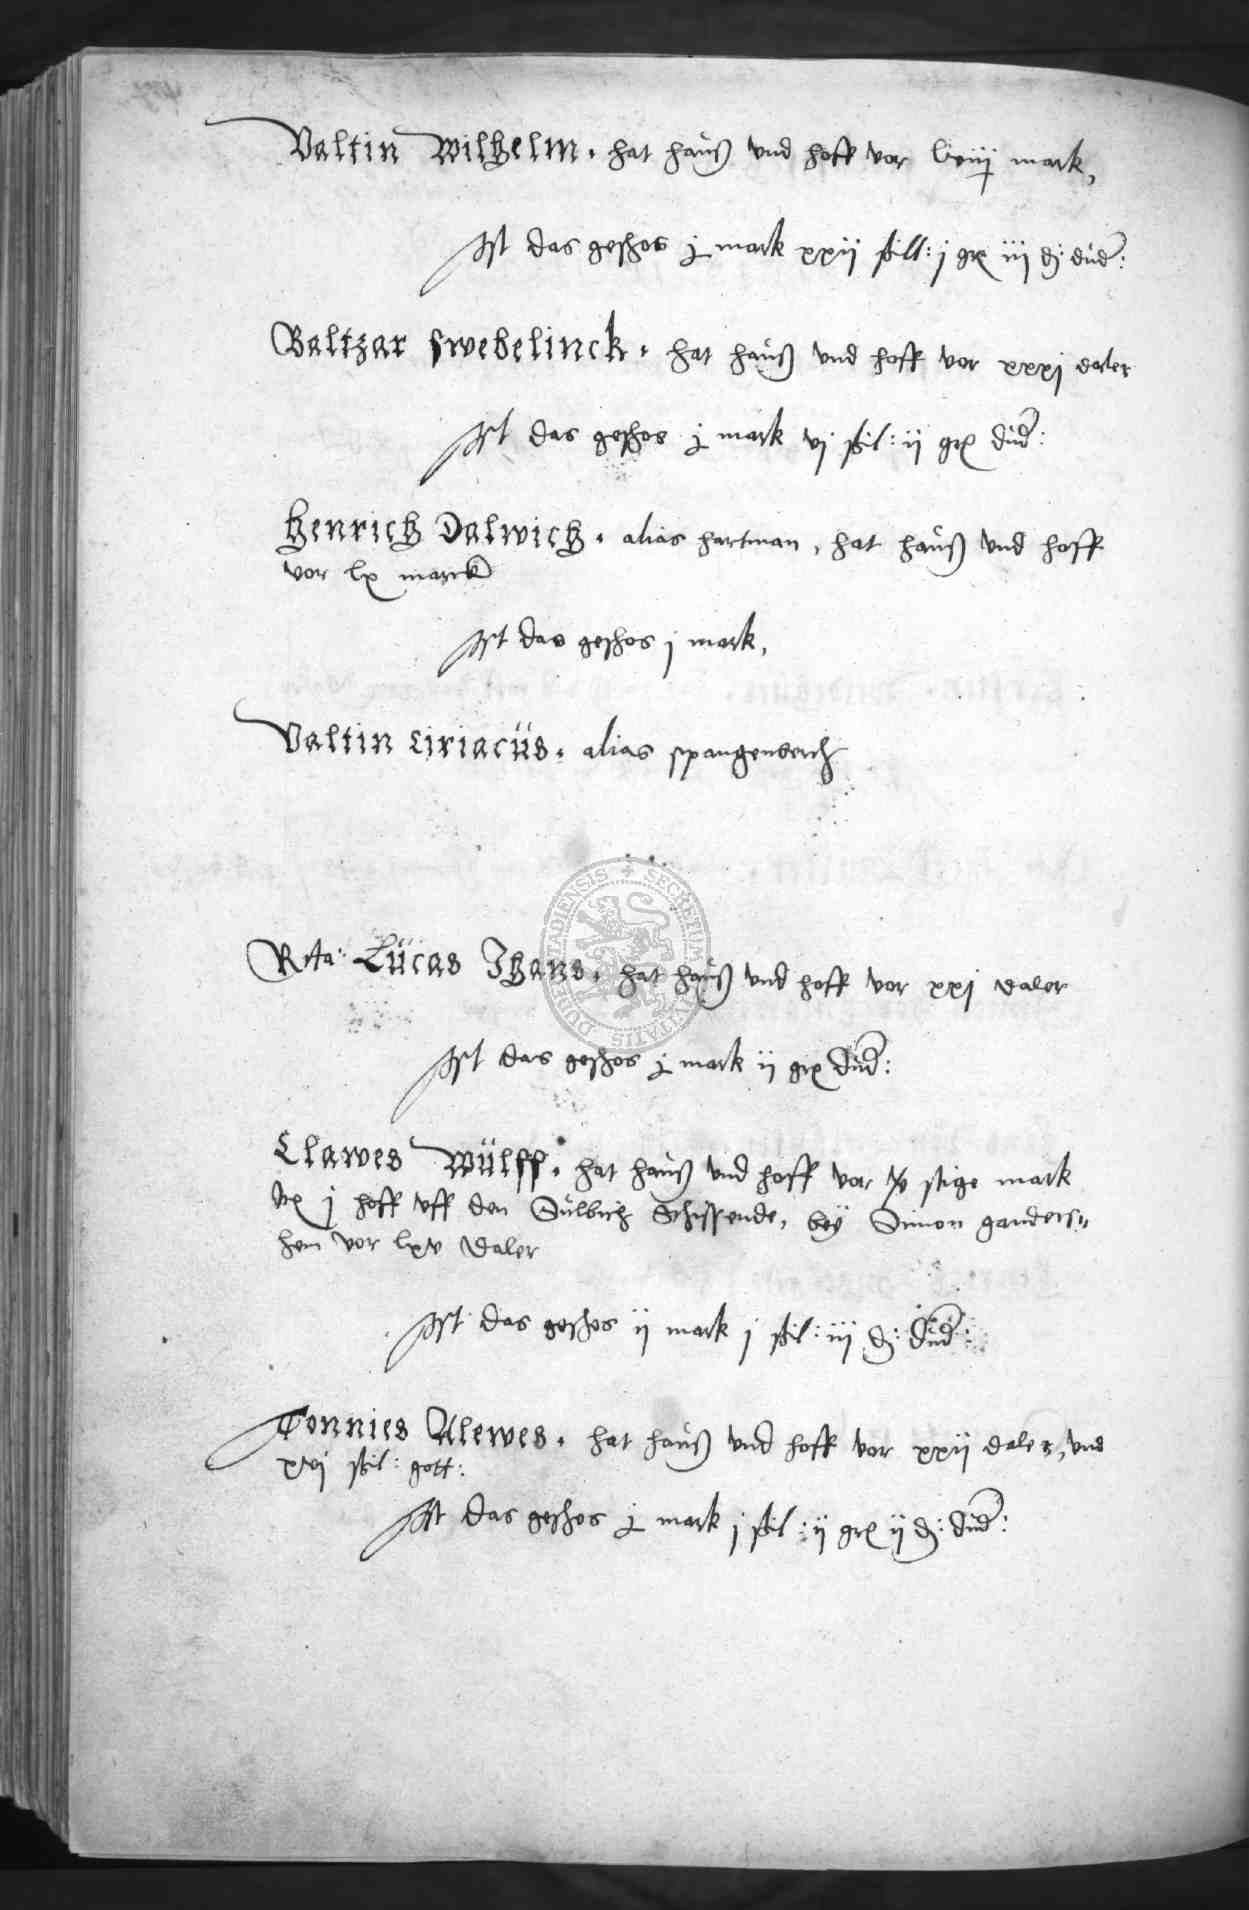 Valtin Wilhelm. hat hauß vnd hoff vor lviij mark,
Ist das geschos j mark xxij schill: j gr iij d: dud:
Baltzar Swebelinck. hat hauß vnd hoff vor xxxj daler
Ist das geschos j mark vj schil: ij gr dud:
Henrich Dalwich. alias hartman, hat hauß vnd hoff
vor lx marck
Ist das geschos j mark,
Valtin Ciriacüs. alias spangenberch
Rta: Lücas Ihans. hat hauß vnd hoff vor xxj daler
Ist das geschos j mark ij gr dud:
Clawes Wülff. hat hauß vnd hoff vor stige mark
j hoff vff den Sulbich bey Simon ganders=
hem vor lxv daler
Ist das geschos ij mark j schil: iij d: dud:
Tonnies Alewes. hat hauß vnd hoff vor xxij daler, vnd
xvj schil: gott:
Ist das geschos j mark j schil: ij gr ij d: dud:
SECRETUM CIVITATIS DUDERSTADIENSIS